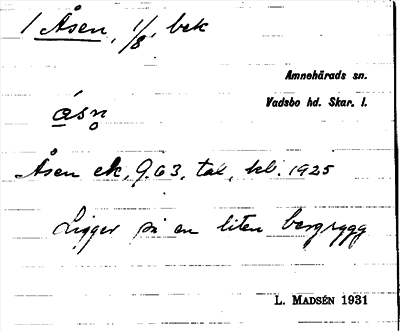 1 Åsen, 1/8, bek
Amnehärads sn.
Vadsbo hd. Skar. l.
åsn̥
Åsen ek, 9.63, tal, kb. 1925
Ligger på en liten bergrygg
L. MADSÉN 1931